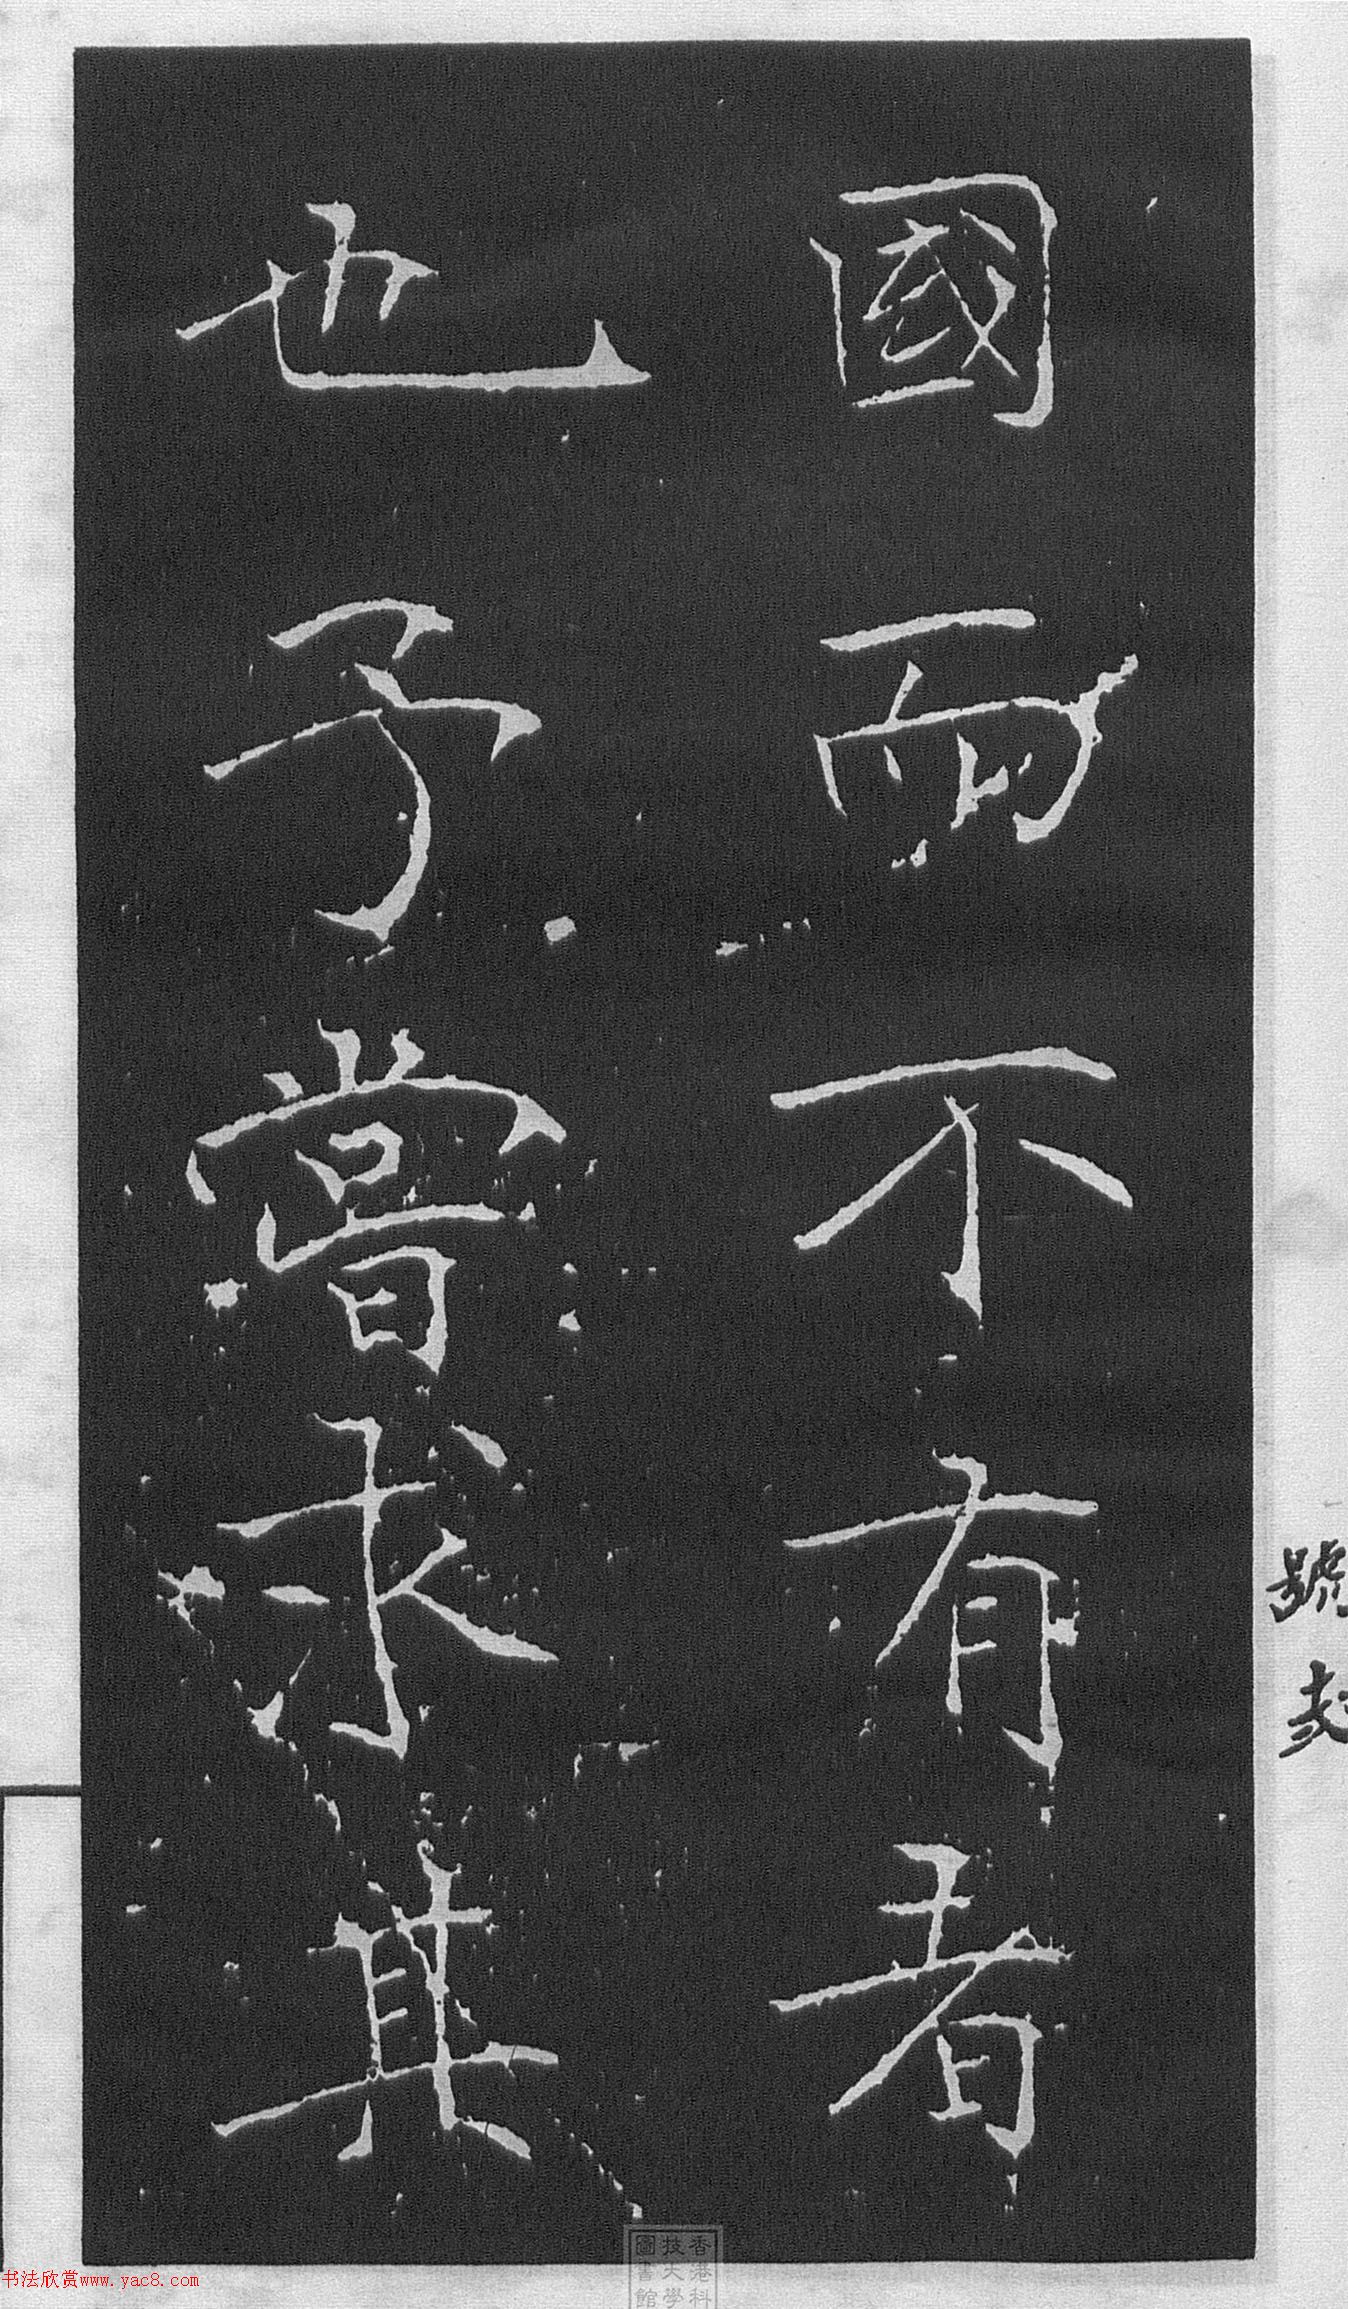 國而不有者
也予嘗求其
號
书法欣赏www.yac8.com
香港科
技大學
圖書館